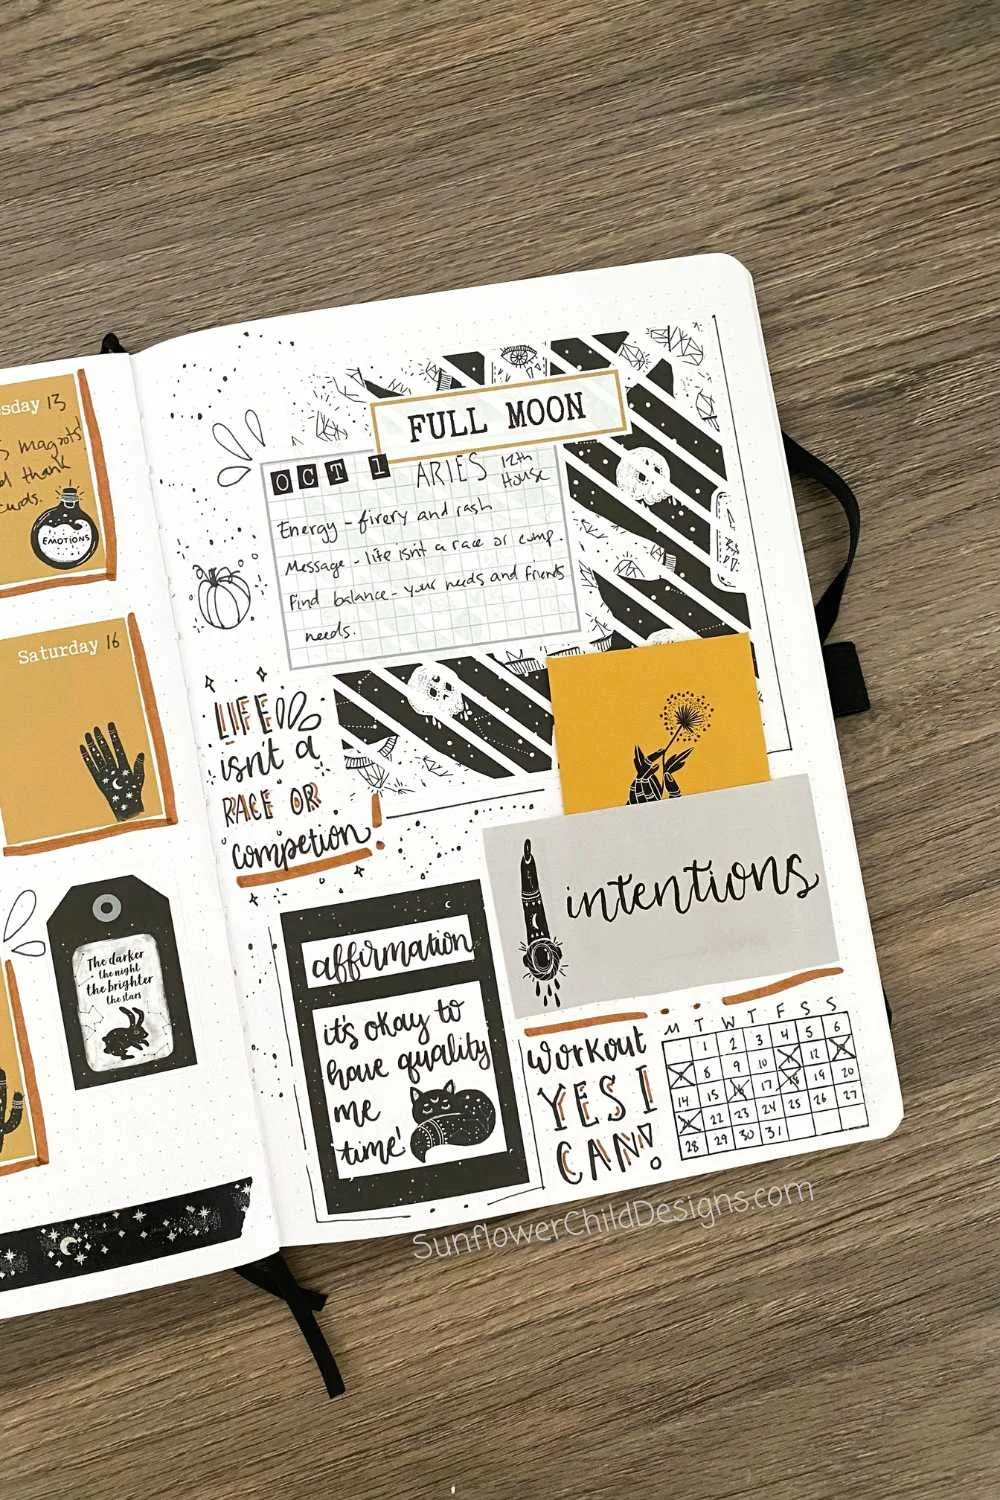 esday 13
thank
EMOTIONS
Saturday 16
The darker
the night
the brighter
the stars
FULL MOON
OCT 1 ARIES 12th House
Energy - firery and rash
Message - life isn't a race or comp.
Find balance - your needs and friends
needs.
LIFE
isn't a
RACE OR
competion!
intentions
affirmation
it's okay to
have quality
me
time!
workout
YES I
CAN!
M T W T F S S
1 2 3 4 5 6
7 8 9 10 12
14 15 16 17 18 19 20
22 23 24 25 26 27
28 29 30 31
SunflowerChildDesigns.com